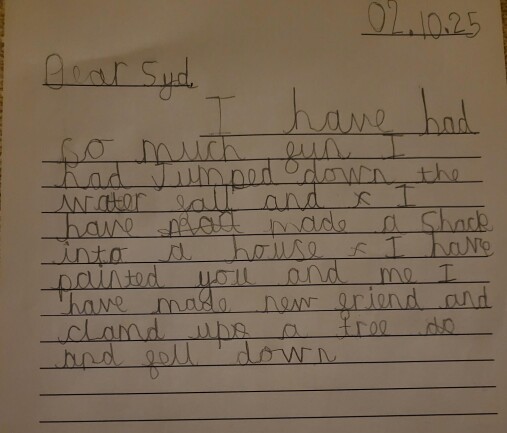 02.10.25
Dear Syd
I have had
so much fun I
had Jumped down the
water fall and x I
have made a Shack
into a house x I have
painted you and me I
have made new friend and
clamd up a tree
and fell down